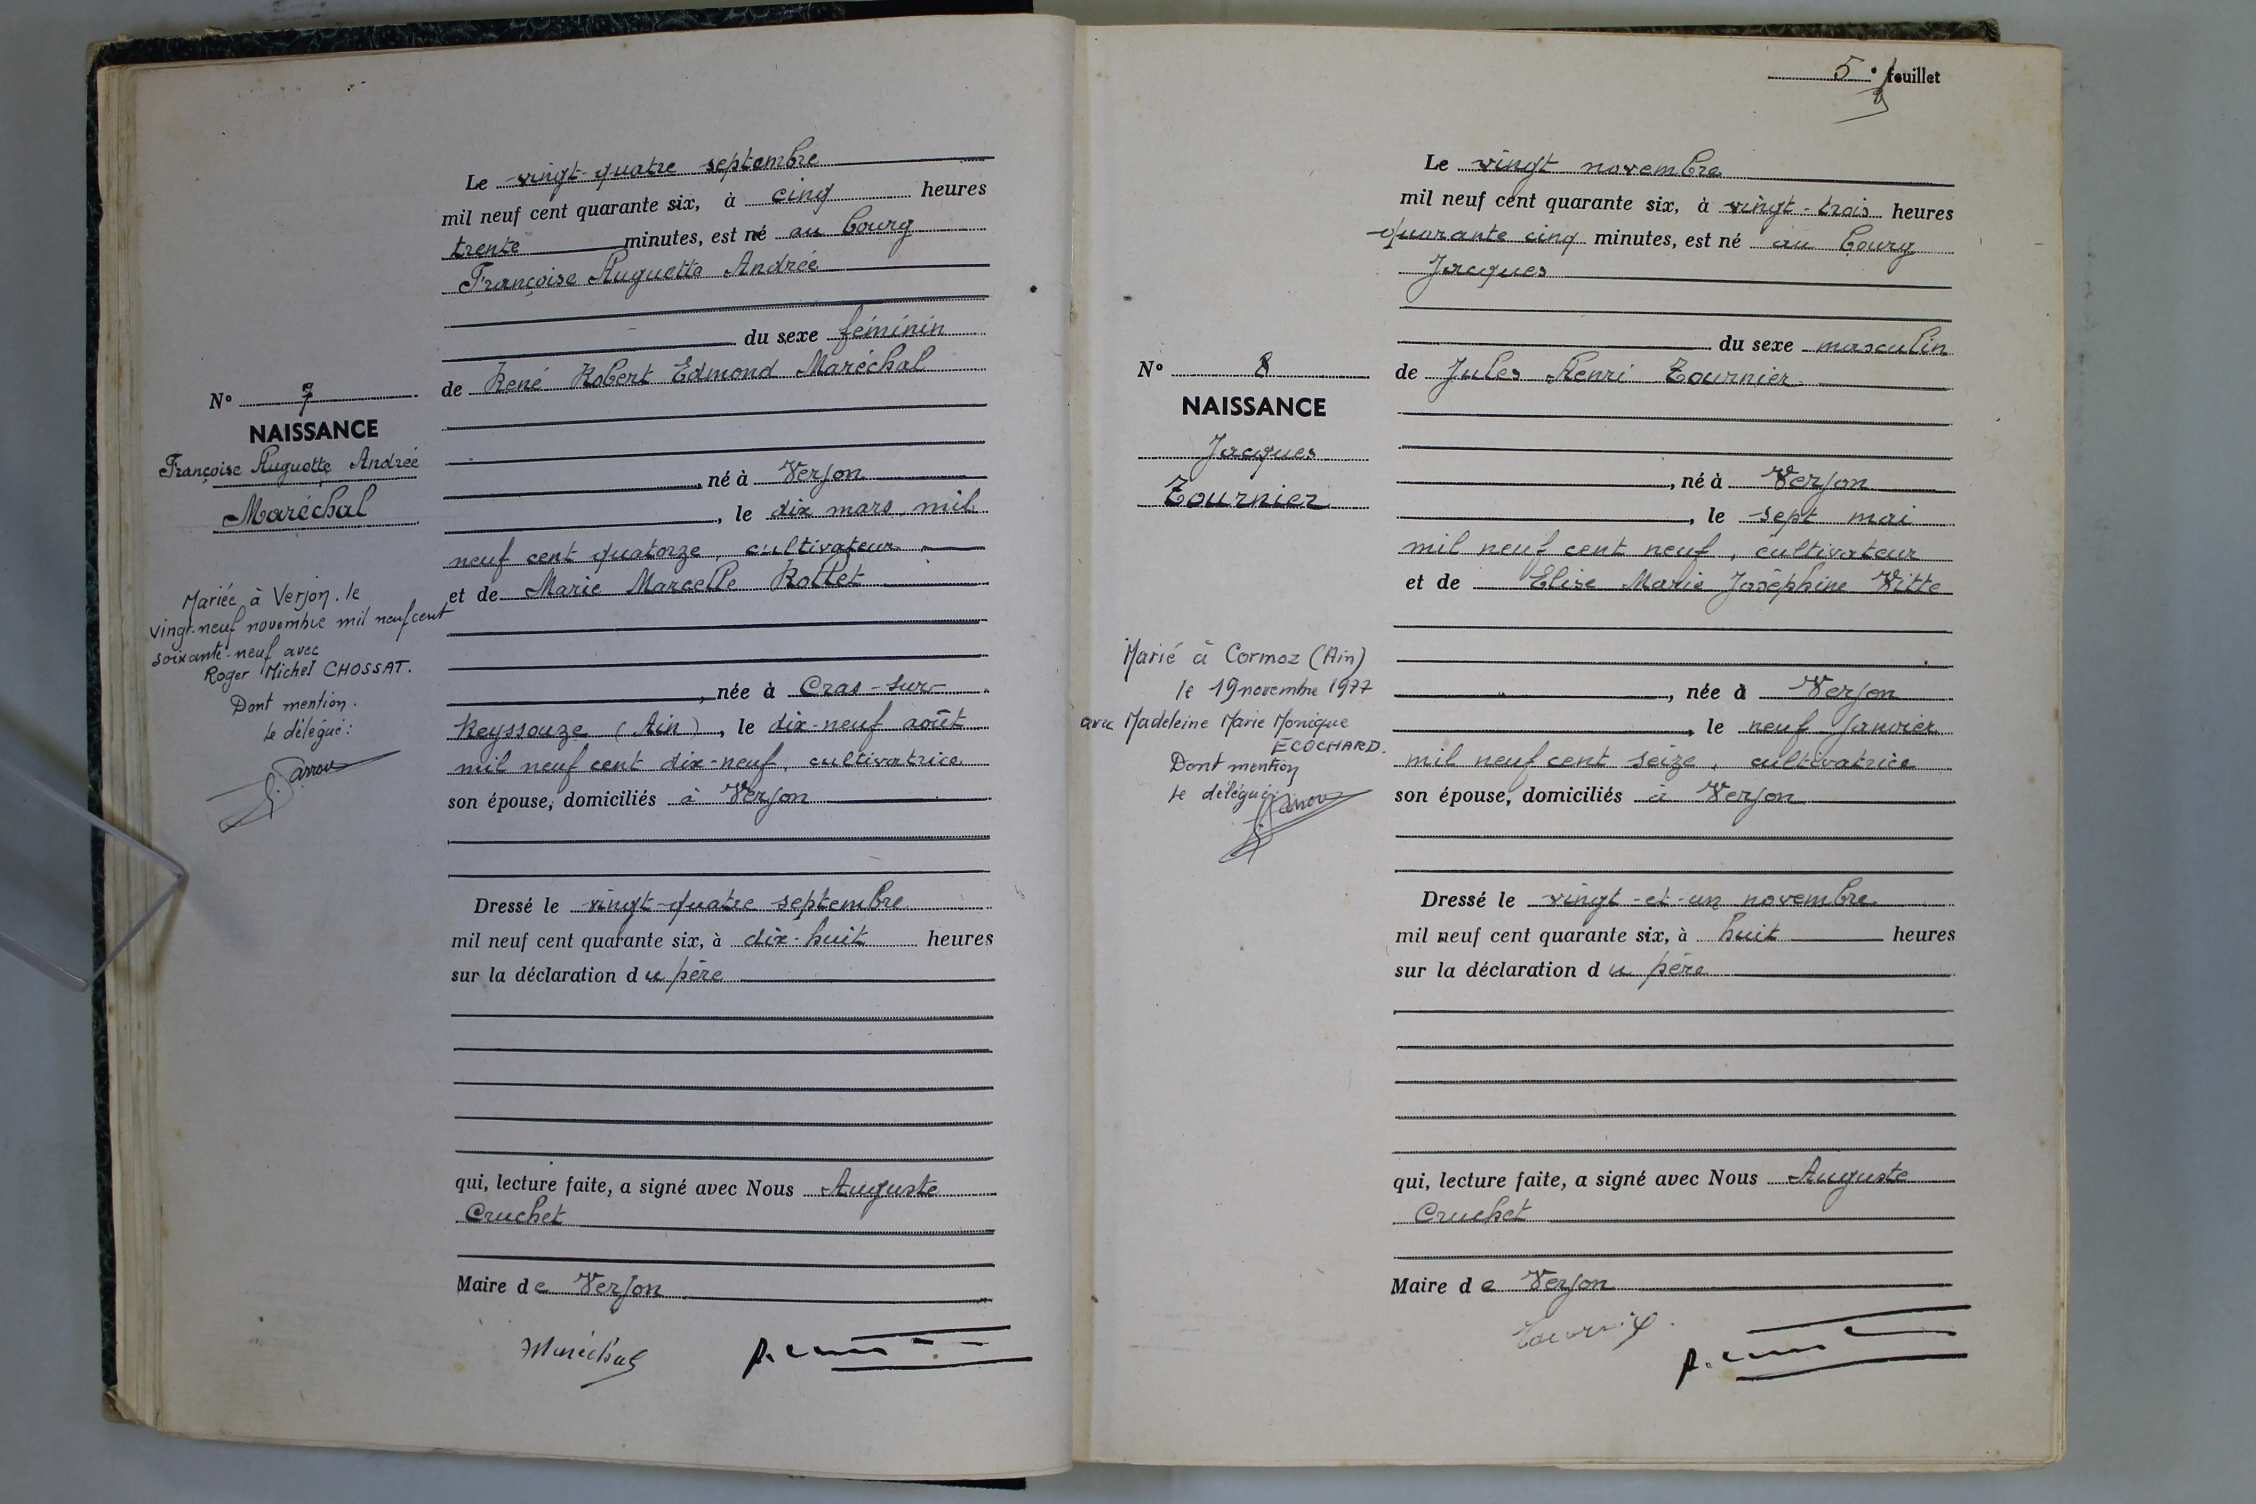 Le vingt-quatre septembre
mil neuf cent quarante six, à cinq heures
trente minutes, est né au bourg
Françoise Huguette Andrée
du sexe féminin
de René Robert Edmond Maréchal
N° 7
NAISSANCE
Françoise Huguette Andrée
Maréchal
, né à Verjon
, le dix mars mil
neuf cent quatorze, cultivateur
et de Marie Marcelle Rollet
Mariée à Verjon, le
vingt-neuf novembre mil neuf cent
soixante-neuf avec
Roger Michel CHOSSAT.
Dont mention.
Le délégué :
, née à Cras-sur-
Reyssouze (Ain), le dix-neuf août
mil neuf cent dix-neuf, cultivatrice
son épouse, domiciliés à Verjon
Dressé le vingt-quatre septembre
mil neuf cent quarante six, à dix-huit heures
sur la déclaration du père
qui, lecture faite, a signé avec Nous Auguste
Cruchet
Maire de Verjon
Maréchal
5e feuillet
Le vingt novembre
mil neuf cent quarante six, à vingt-trois heures
quarante cinq minutes, est né au bourg
Jacques
du sexe masculin
de Jules Henri Tournier
N° 8
NAISSANCE
Jacques
Tournier
, né à Verjon
, le sept mai
mil neuf cent neuf, cultivateur
et de Elise Marie Joséphine Vitte
Marié à Cormoz (Ain)
le 19 novembre 1977
avec Madeleine Marie Monique
ECOCHARD.
Dont mention
Le délégué :
, née à Verjon
, le neuf janvier
mil neuf cent seize, cultivatrice
son épouse, domiciliés à Verjon
Dressé le vingt-et-un novembre
mil neuf cent quarante six, à huit heures
sur la déclaration du père
qui, lecture faite, a signé avec Nous Auguste
Cruchet
Maire de Verjon
Tournier